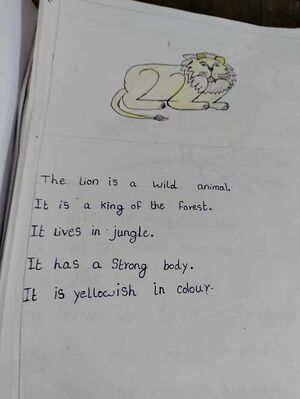 The Lion is a wild animal.
It is a king of the forest.
It lives in jungle.
It has a strong body.
It is yellowish in colour.